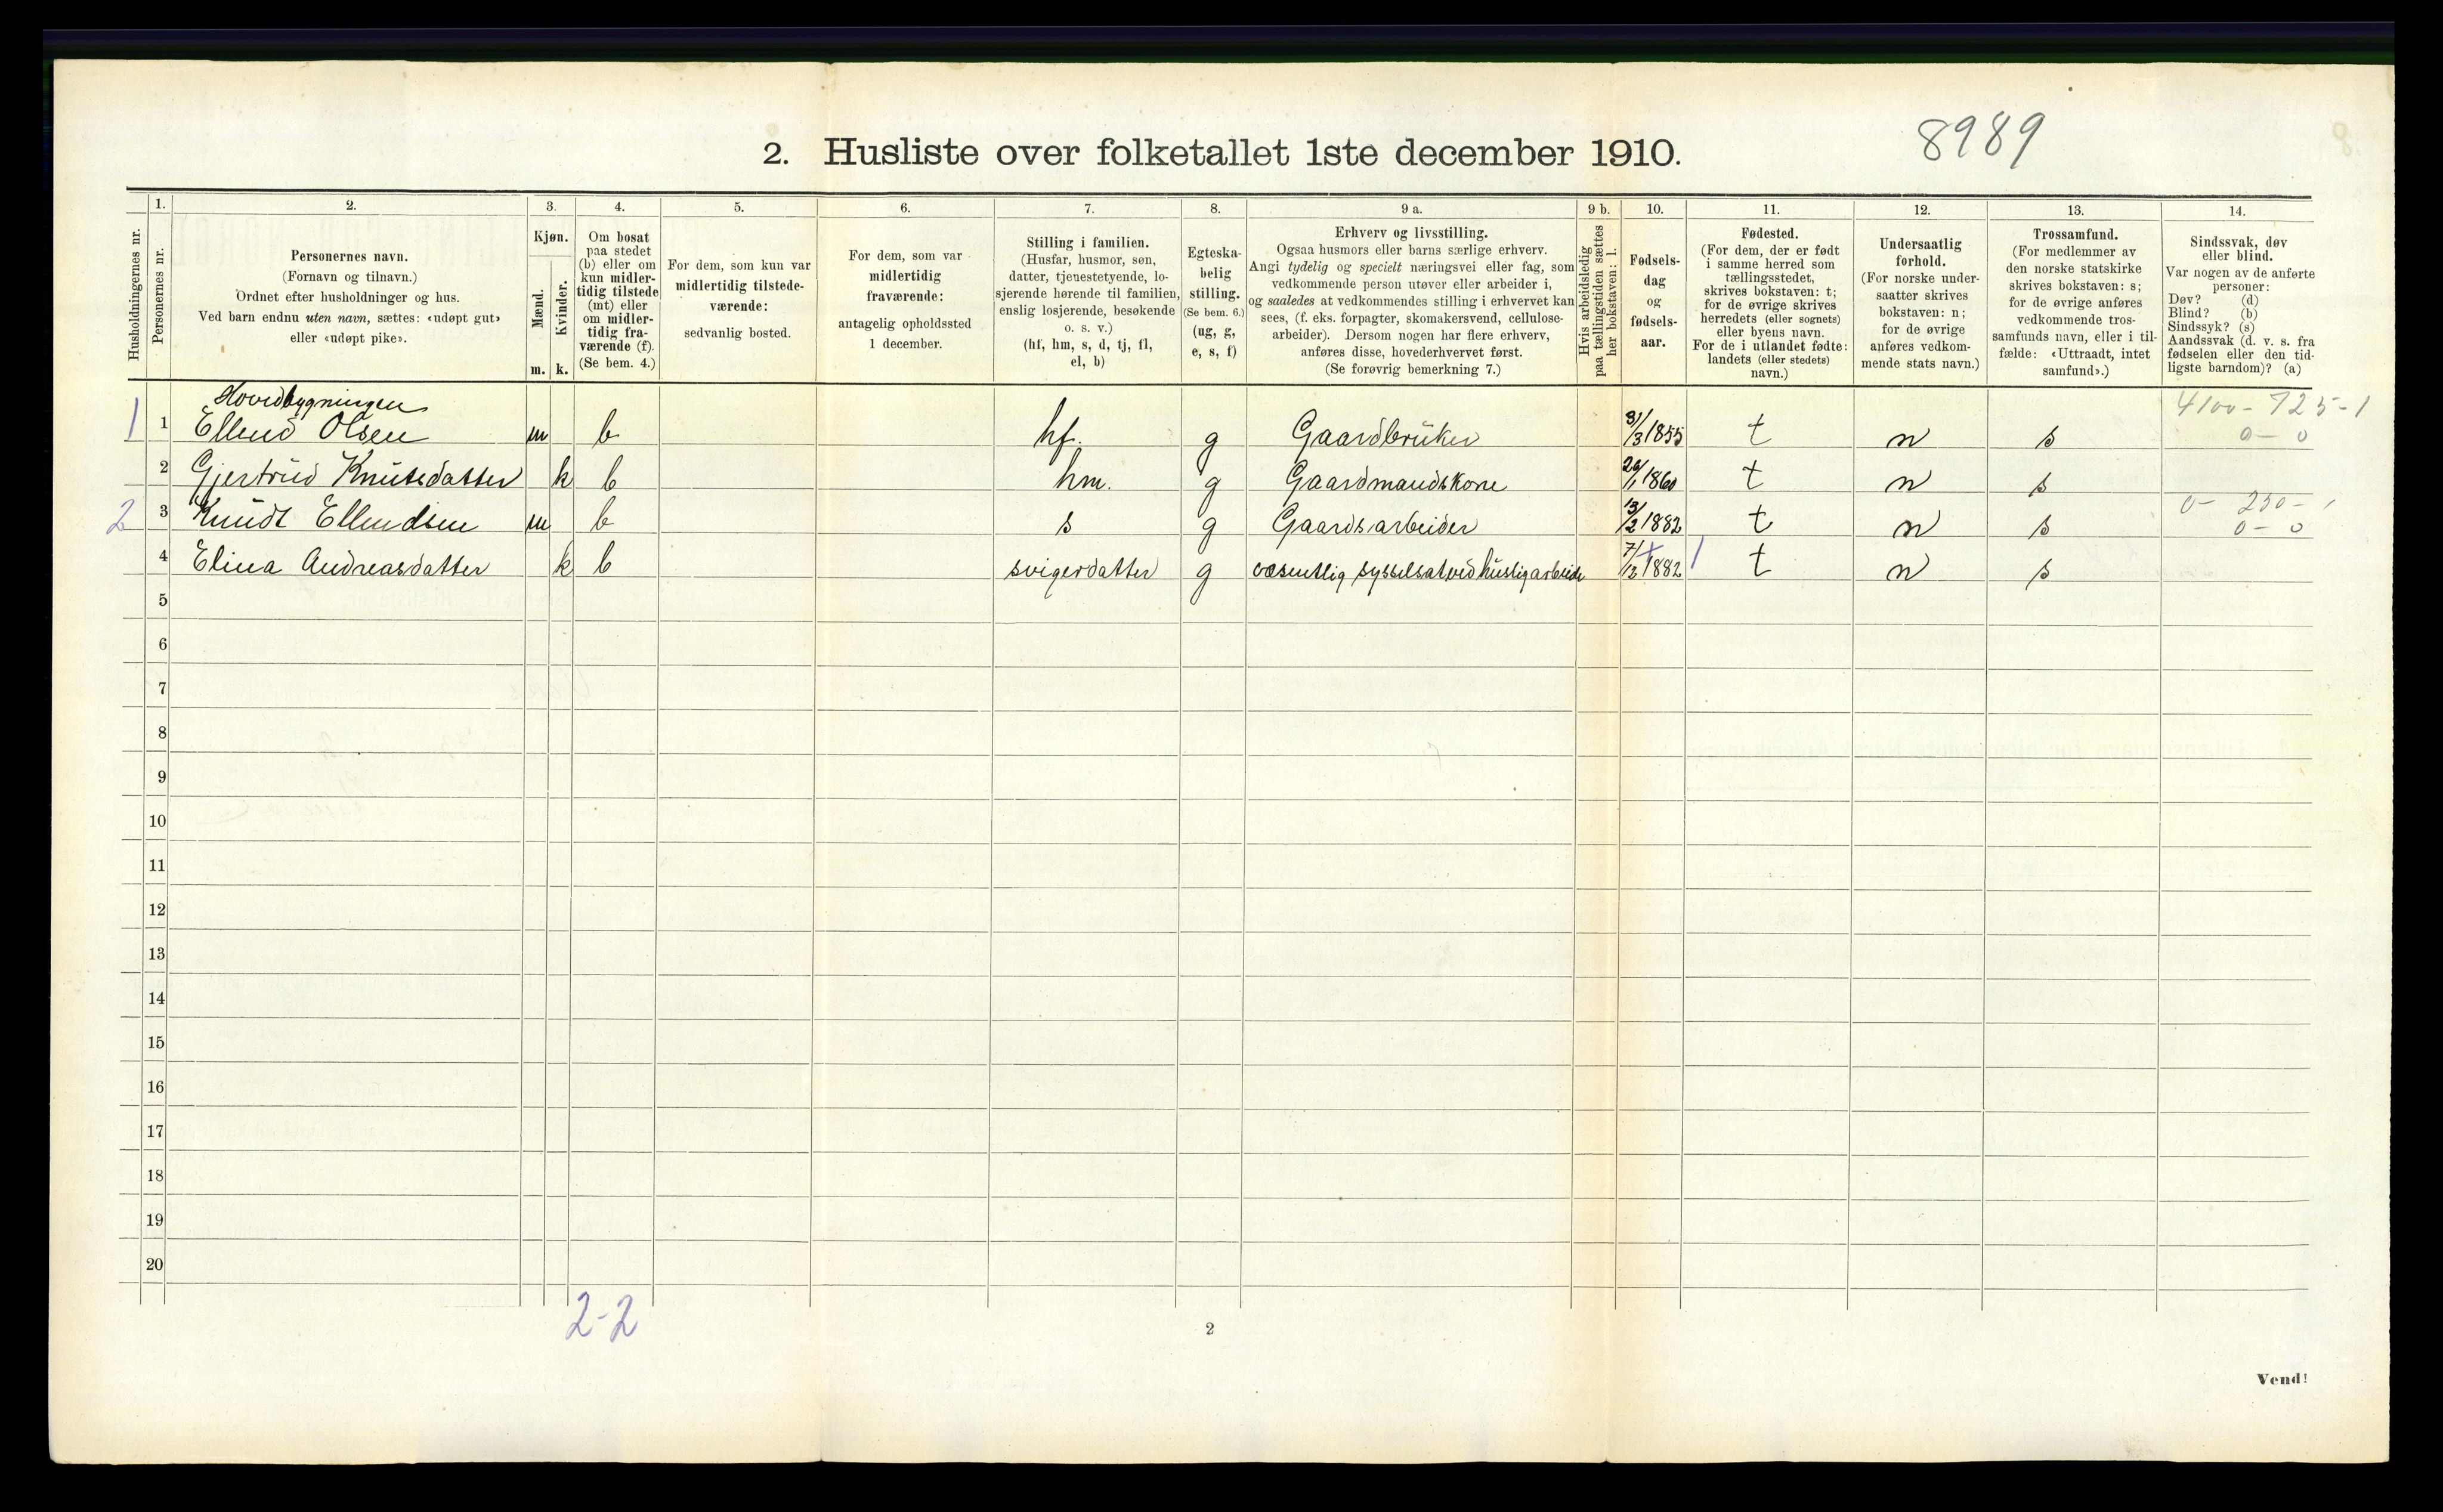 8989
2. Husliste over folketallet 1ste december 1910.
Husholdningernes nr.
1.
Personernes nr.
2.
Personernes navn.
(Fornavn og tilnavn.)
Ordnet efter husholdninger og hus.
Ved barn endnu uten navn, sættes: «udøpt gut»
eller «udøpt pike».
3.
Kjøn.
Mænd.
Kvinder.
m. k.
4.
Om bosat
paa stedet
(b) eller om
kun midler-
tidig tilstede
(mt) eller
om midler-
tidig fra-
værende (f).
(Se bem. 4.)
5.
For dem, som kun var
midlertidig tilstede-
værende:
sedvanlig bosted.
6.
For dem, som var
midlertidig
fraværende:
antagelig opholdssted
1 december.
7.
Stilling i familien.
(Husfar, husmor, søn,
datter, tjenestetyende, lo-
sjerende hørende til familien,
enslig losjerende, besøkende
o. s. v.)
(hf, hm, s, d, tj, fl,
el, b)
8.
Egteska-
belig
stilling.
(Se bem. 6.)
(ug, g,
e, s, f)
9 a.
Erhverv og livsstilling.
Ogsaa husmors eller barns særlige erhverv.
Angi tydelig og specielt næringsvei eller fag, som
vedkommende person utøver eller arbeider i,
og saaledes at vedkommendes stilling i erhvervet kan
sees, (f. eks. forpagter, skomakersvend, cellulose-
arbeider). Dersom nogen har flere erhverv,
anføres disse, hovederhvervet først.
(Se forøvrig bemerkning 7.)
9 b.
Hvis arbeidsledig
paa tællingstiden sættes
her bokstaven: l.
10.
Fødsels-
dag
og
fødsels-
aar.
11.
Fødested.
(For dem, der er født
i samme herred som
tællingsstedet,
skrives bokstaven: t;
for de øvrige skrives
herredets (eller sognets)
eller byens navn.
For de i utlandet fødte:
landets (eller stedets)
navn.)
12.
Undersaatlig
forhold.
(For norske under-
saatter skrives
bokstaven: n;
for de øvrige
anføres vedkom-
mende stats navn.)
13.
Trossamfund.
(For medlemmer av
den norske statskirke
skrives bokstaven: s;
for de øvrige anføres
vedkommende tros-
samfunds navn, eller i til-
fælde: «Uttraadt, intet
samfund».)
14.
Sindssvak, døv
eller blind.
Var nogen av de anførte
personer:
Døv? (d)
Blind? (b)
Sindssyk? (s)
Aandssvak (d. v. s. fra
fødselen eller den tid-
ligste barndom)? (a)
Hovedbygningen
4100 - 725 - 1
1 1 Ellend Olsen m b hf. g Gaardbruker 31/3 1855 t n s 0 - 0
2 Gjertrud Knutsdatter k b hm. g Gaardmandskone 26/1 1860 t n s
0 - 250 - 1
2 3 Knudt Ellendsen m b s g Gaardsarbeider 13/2 1882 t n s 0 - 0
4 Elina Andreasdatter k b svigerdatter g væsentlig sysselsat ved huslig arbeide 7/12 1882 t n s
5
6
7
8
9
10
11
12
13
14
15
16
17
18
19
20
2-2
2
Vend!